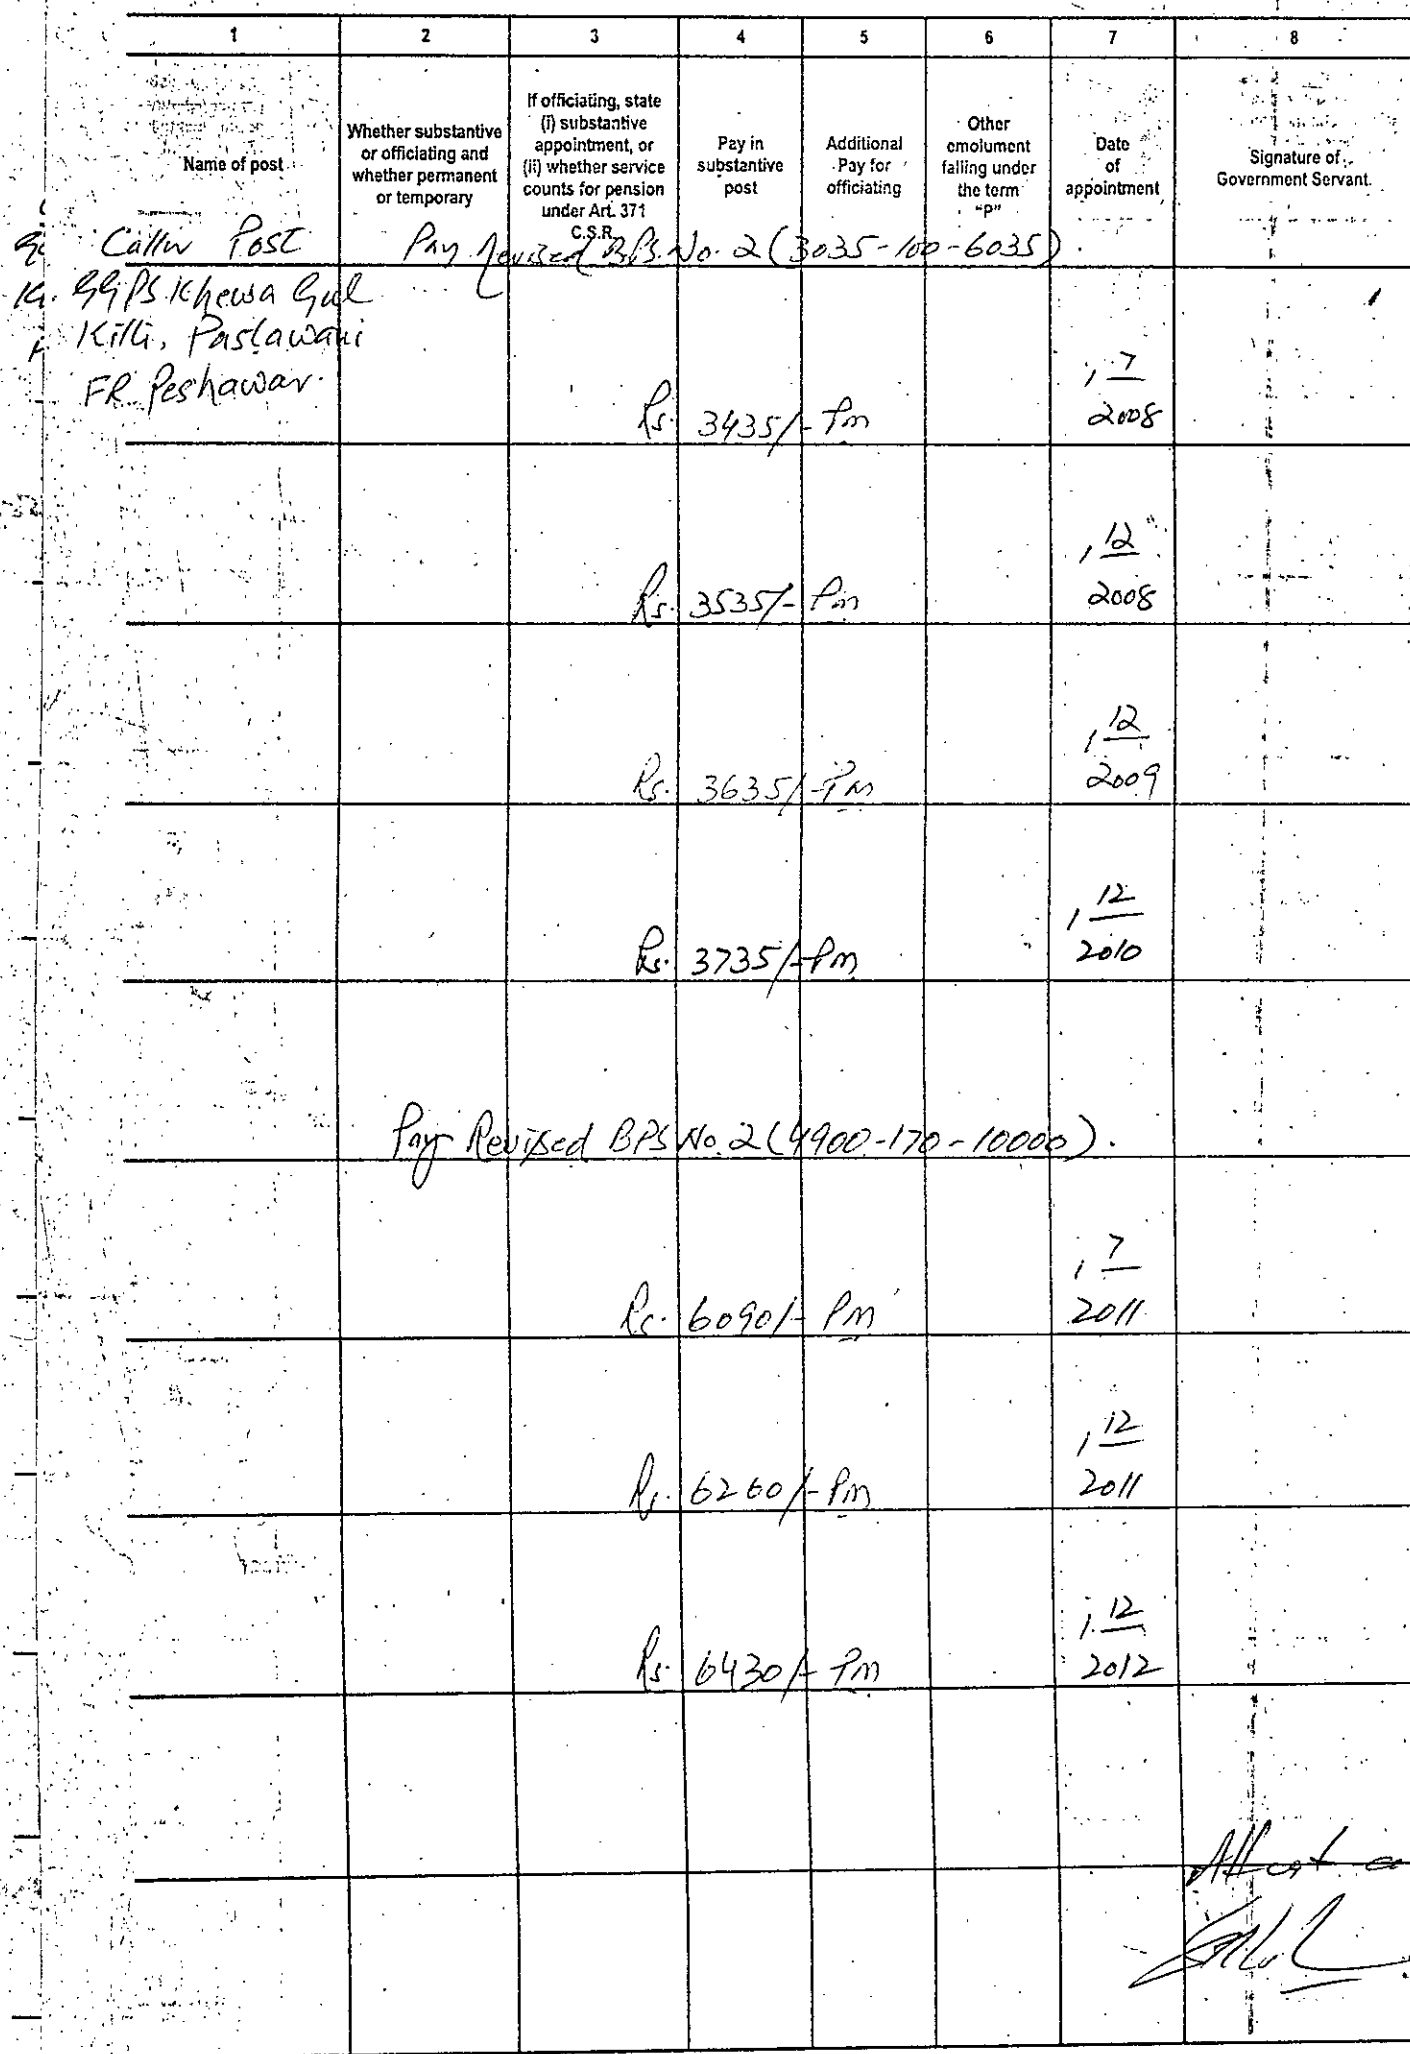 1 2 3 4 5 6 7 8
Name of post
Whether substantive
or officiating and
whether permanent
or temporary
If officiating, state
(i) substantive
appointment, or
(ii) whether service
counts for pension
under Art. 371
C.S.R.
Pay in
substantive
post
Additional
Pay for
officiating
Other
emolument
falling under
the term
"P"
Date
of
appointment
Signature of
Government Servant.
Caller Post Pay revised BPS. No. 2 (3035-100-6035).
GGPS Khewa Gul
Killi, Pastawani
FR Peshawar.
Rs. 3435/- Pm 1, 7
2008
Rs. 3535/- Pm 1, 12
2008
Rs. 3635/- Pm 1, 12
2009
Rs. 3735/- Pm 1, 12
2010
Pay Revised BPS No. 2 (4900-170-10000).
Rs. 6090/- Pm 1, 7
2011
Rs. 6260/- Pm 1, 12
2011
Rs. 6430/- Pm 1, 12
2012